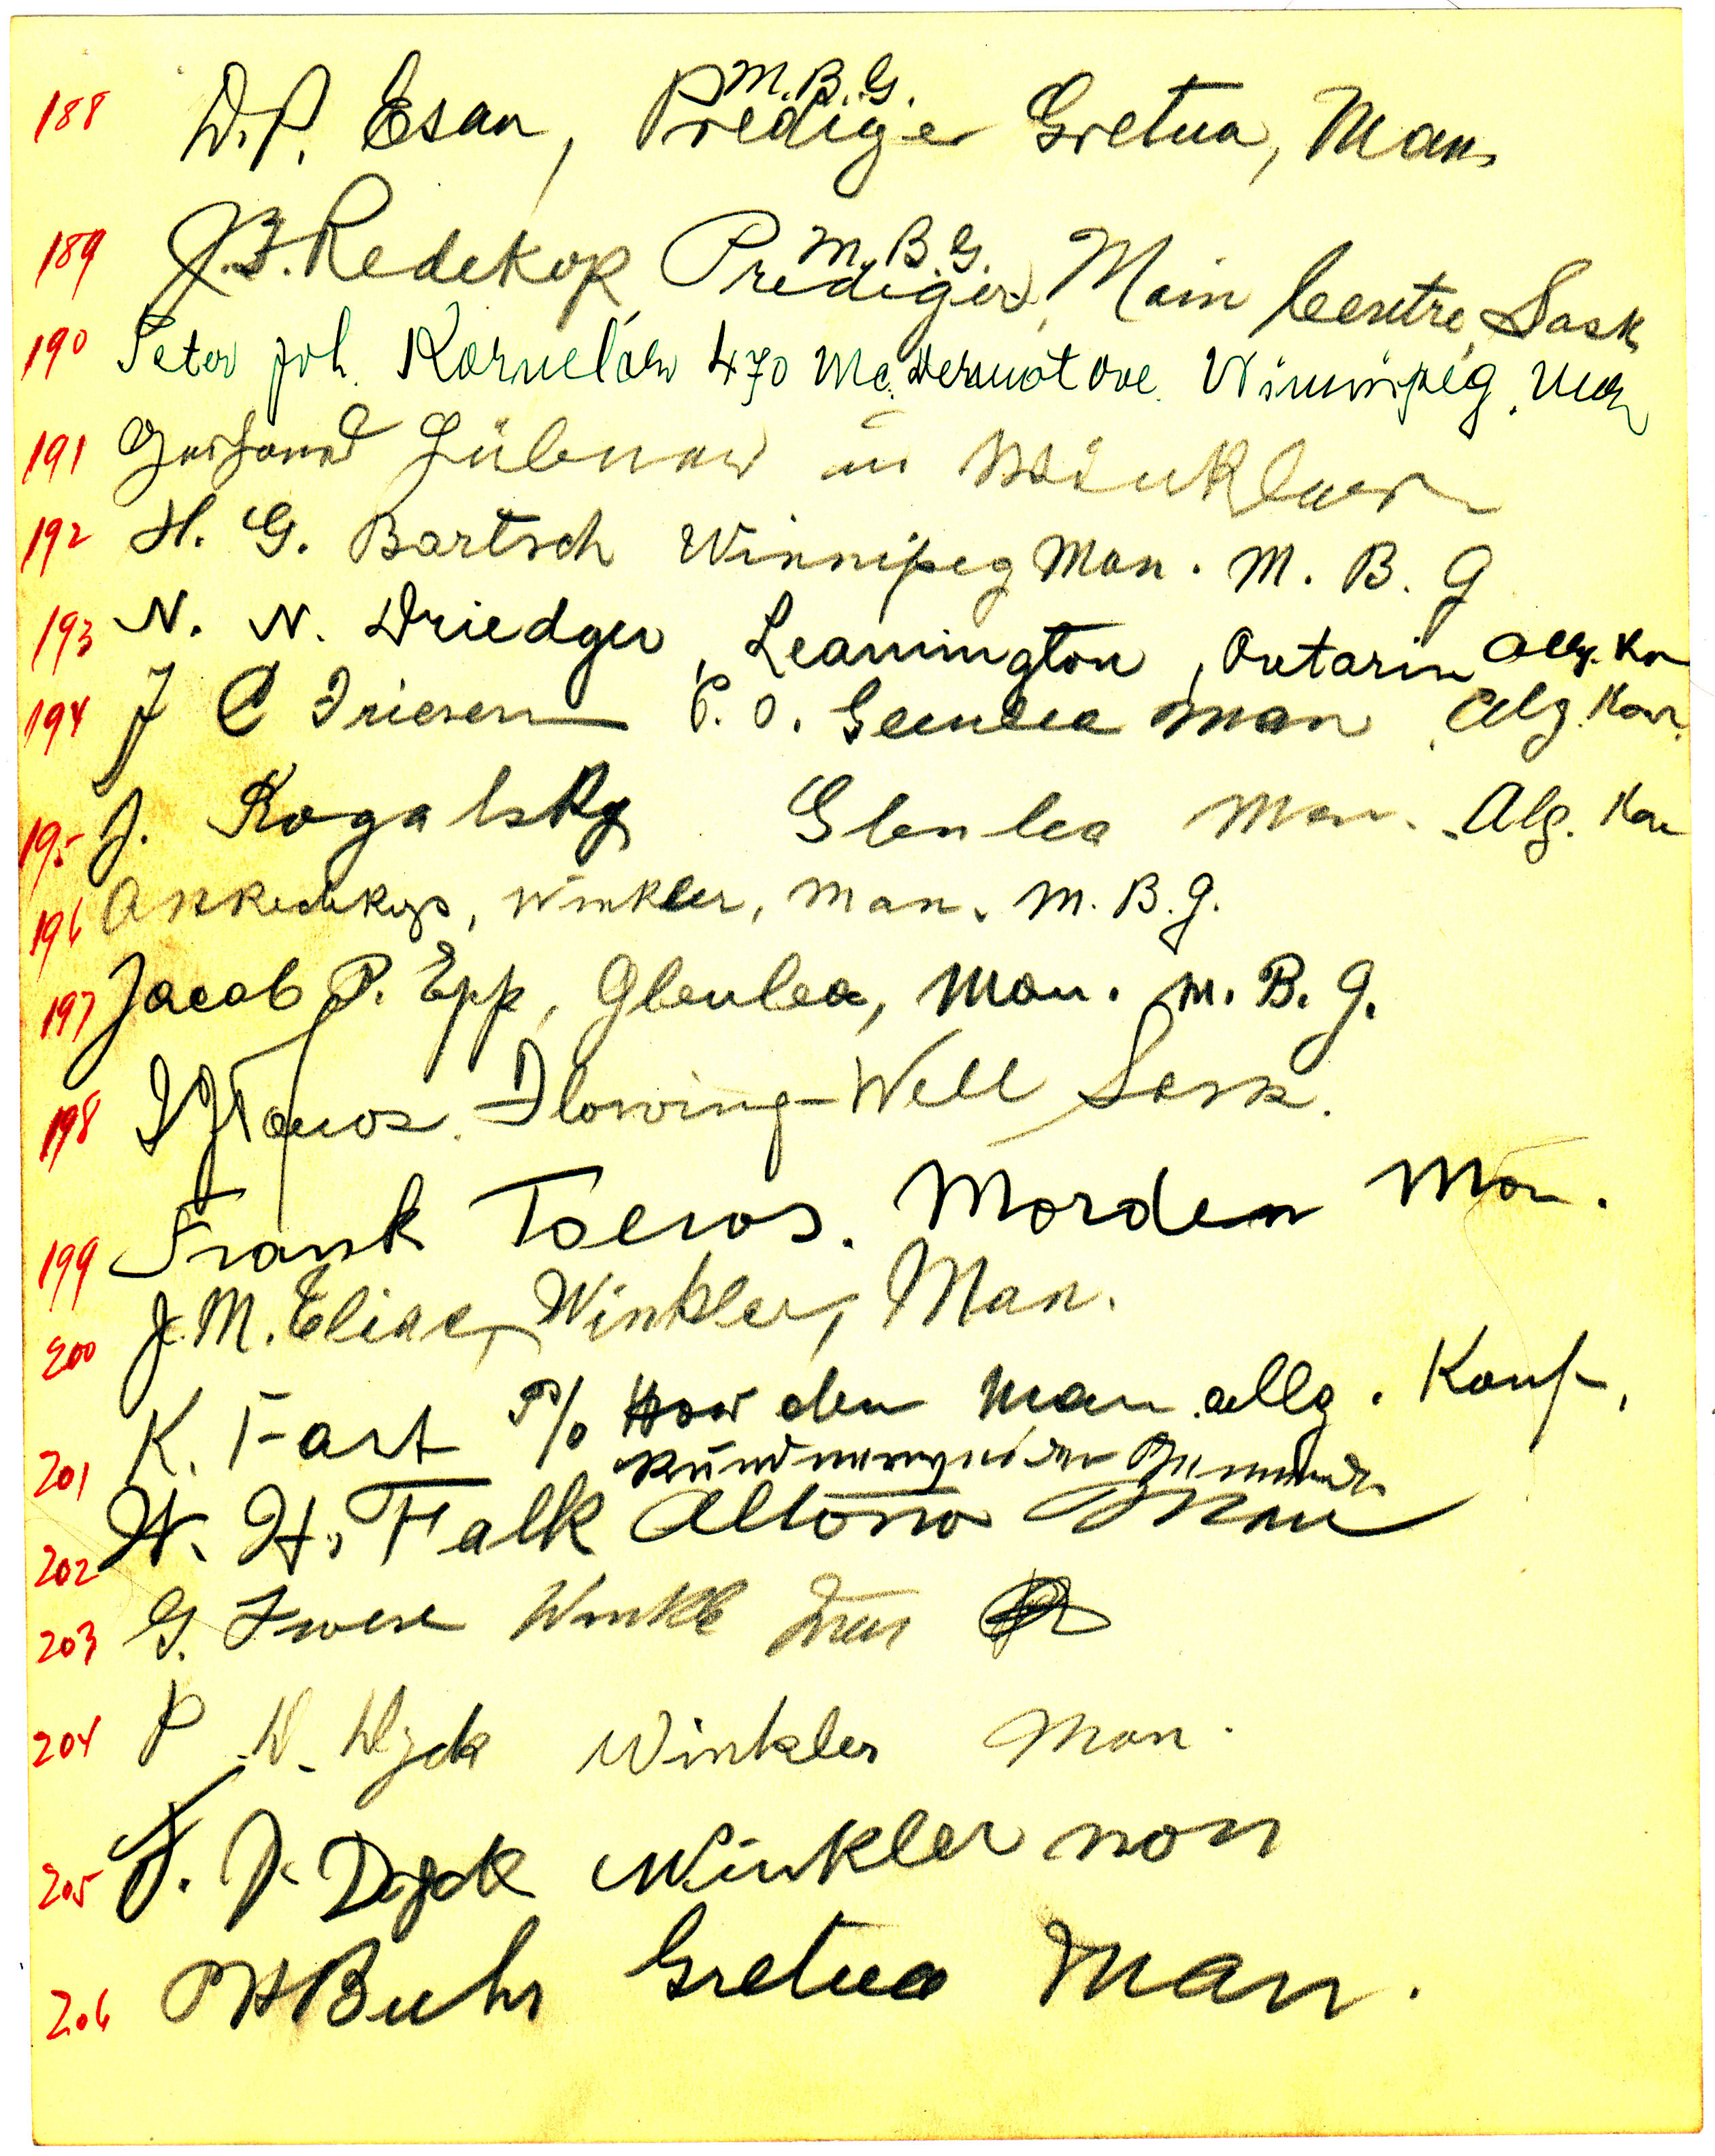 188 D. P. Esau, Prediger M.B.G. Gretna, Man.
189 J. B. Redekop, Prediger M.B.G., Main Centre, Sask
190 Peter Joh. Kornelsen 470 Mc.Dermot ave. Winnipeg, Man
191 Gerhard in Winkler
192 H. G. Bartsch Winnipeg Man. M. B. G
193 N. N. Driedger, Leamington, Ontario Allg. Kon
194 J C Friesen P. O. Glenlea Man. Alg. Konf.
195 J. Rogalsky Glenlea Man. Alg. Kon
196 Redekop, Winkler, Man. M. B. G.
197 Jacob P. Epp, Glenlea, Man. M. B. G.
198 Toews. Flowing-Well Sask.
199 Frank Toews. Morden Man.
200 J. M. Elias, Winkler, Man.
201 K. Fast P/o Howden Man allg. Konf.
202 W. H. Falk Altona Man
203 G. Winkl Man
204 P. W. Dyck Winkler Man.
205 J. J. Dyck Winkler man
206 P H Buhr Gretna Man.